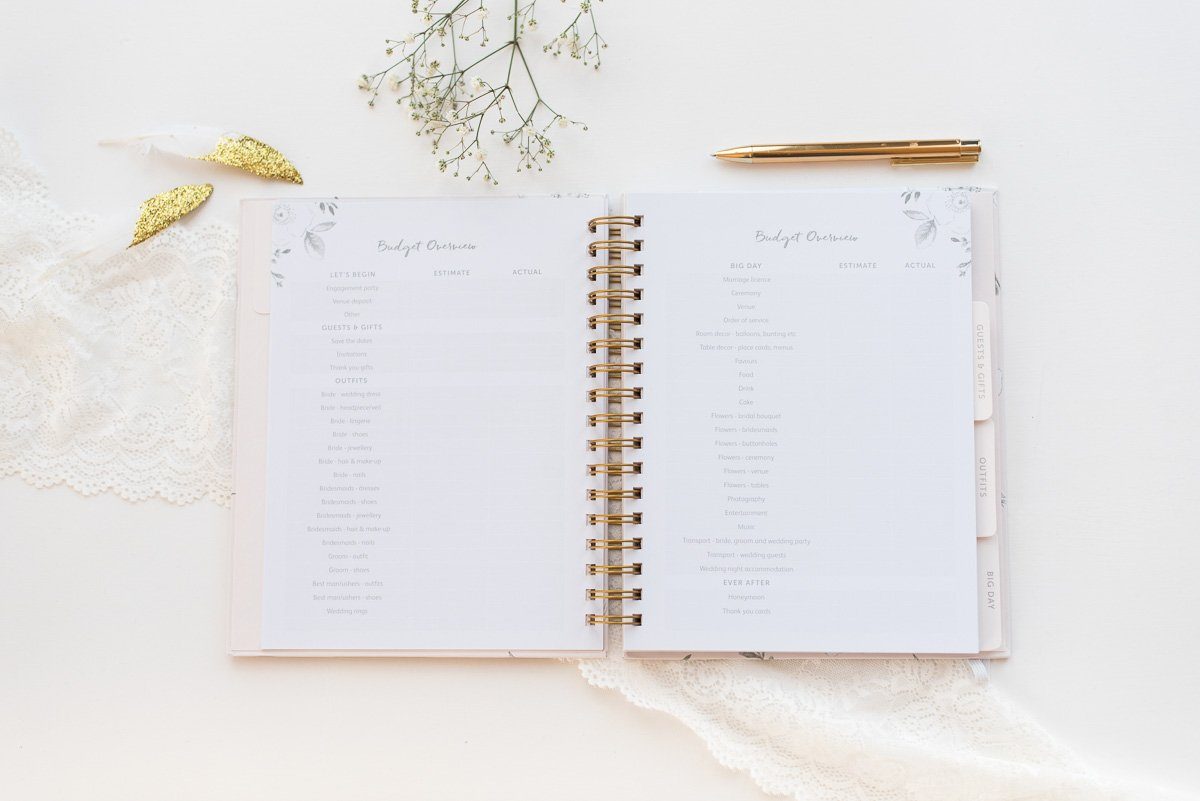 Budget Overview
LET'S BEGIN ESTIMATE ACTUAL
Engagement party
Venue deposit
Other
GUESTS & GIFTS
Save the dates
Invitations
Thank you gifts
OUTFITS
Bride - wedding dress
Bride - headpiece/veil
Bride - lingerie
Bride - shoes
Bride - jewellery
Bride - hair & make-up
Bride - nails
Bridesmaids - dresses
Bridesmaids - shoes
Bridesmaids - jewellery
Bridesmaids - hair & make-up
Bridesmaids - nails
Groom - outfit
Groom - shoes
Best man/ushers - outfits
Best man/ushers - shoes
Wedding rings
Budget Overview
BIG DAY ESTIMATE ACTUAL
Marriage licence
Ceremony
Venue
Order of service
Room decor - balloons, bunting etc
Table decor - place cards, menus
Favours
Food
Drink
Cake
Flowers - bridal bouquet
Flowers - bridesmaids
Flowers - buttonholes
Flowers - ceremony
Flowers - venue
Flowers - tables
Photography
Entertainment
Music
Transport - bride, groom and wedding party
Transport - wedding guests
Wedding night accommodation
EVER AFTER
Honeymoon
Thank you cards
GUESTS & GIFTS
OUTFITS
BIG DAY